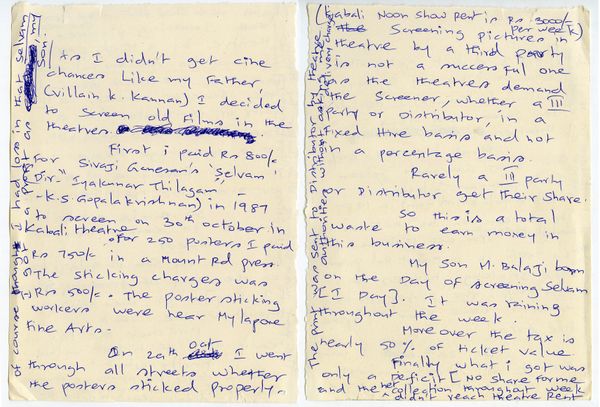 As I didn't get cine
chances Like my Father,
(villain K. Kannan) I decided
to screen old films in the
theatres
First i paid Rs 800/-
For Sivaji Ganesan's 'Selvam'
Dir-" Iyakunar Thilagam -
-K.S. Gopalakrishnan) in 1987
to screen on 30th october in
Kabali theatre
For 250 posters I paid
Rs 750/- in a Mount Rd press.
The sticking charges was
Rs 500/-. The poster sticking
workers were near Mylapore
Fine Arts.
On 29th Oct I went
through all streets whether
the posters sticked properly.
Of course I had loss in that Selvam
I got a profit as my
Son.
(Kabali Noon show Rent is Rs. 3000/-
per week)
Screening pictures in
theatre by a third party
is not a successful one
as the theatres demand
the Screener, whether a III
party or Distributor, in a
Fixed Hire basis and not
in a percentage basis.
Rarely a III party
or Distributor get their share.
So this is a total
waste to earn money in
this business.
My Son M. Balaji born
on the Day of screening Selvam
[I Day]. It was raining
throughout the week.
More over the tax is
nearly 50% of ticket value
Finally what i got was
only a Deficit [No share for me
and the net collection throughout week
didn't reach theatre Rent
The print was sent to Distributor by theatre
authorities without asking delivery charge